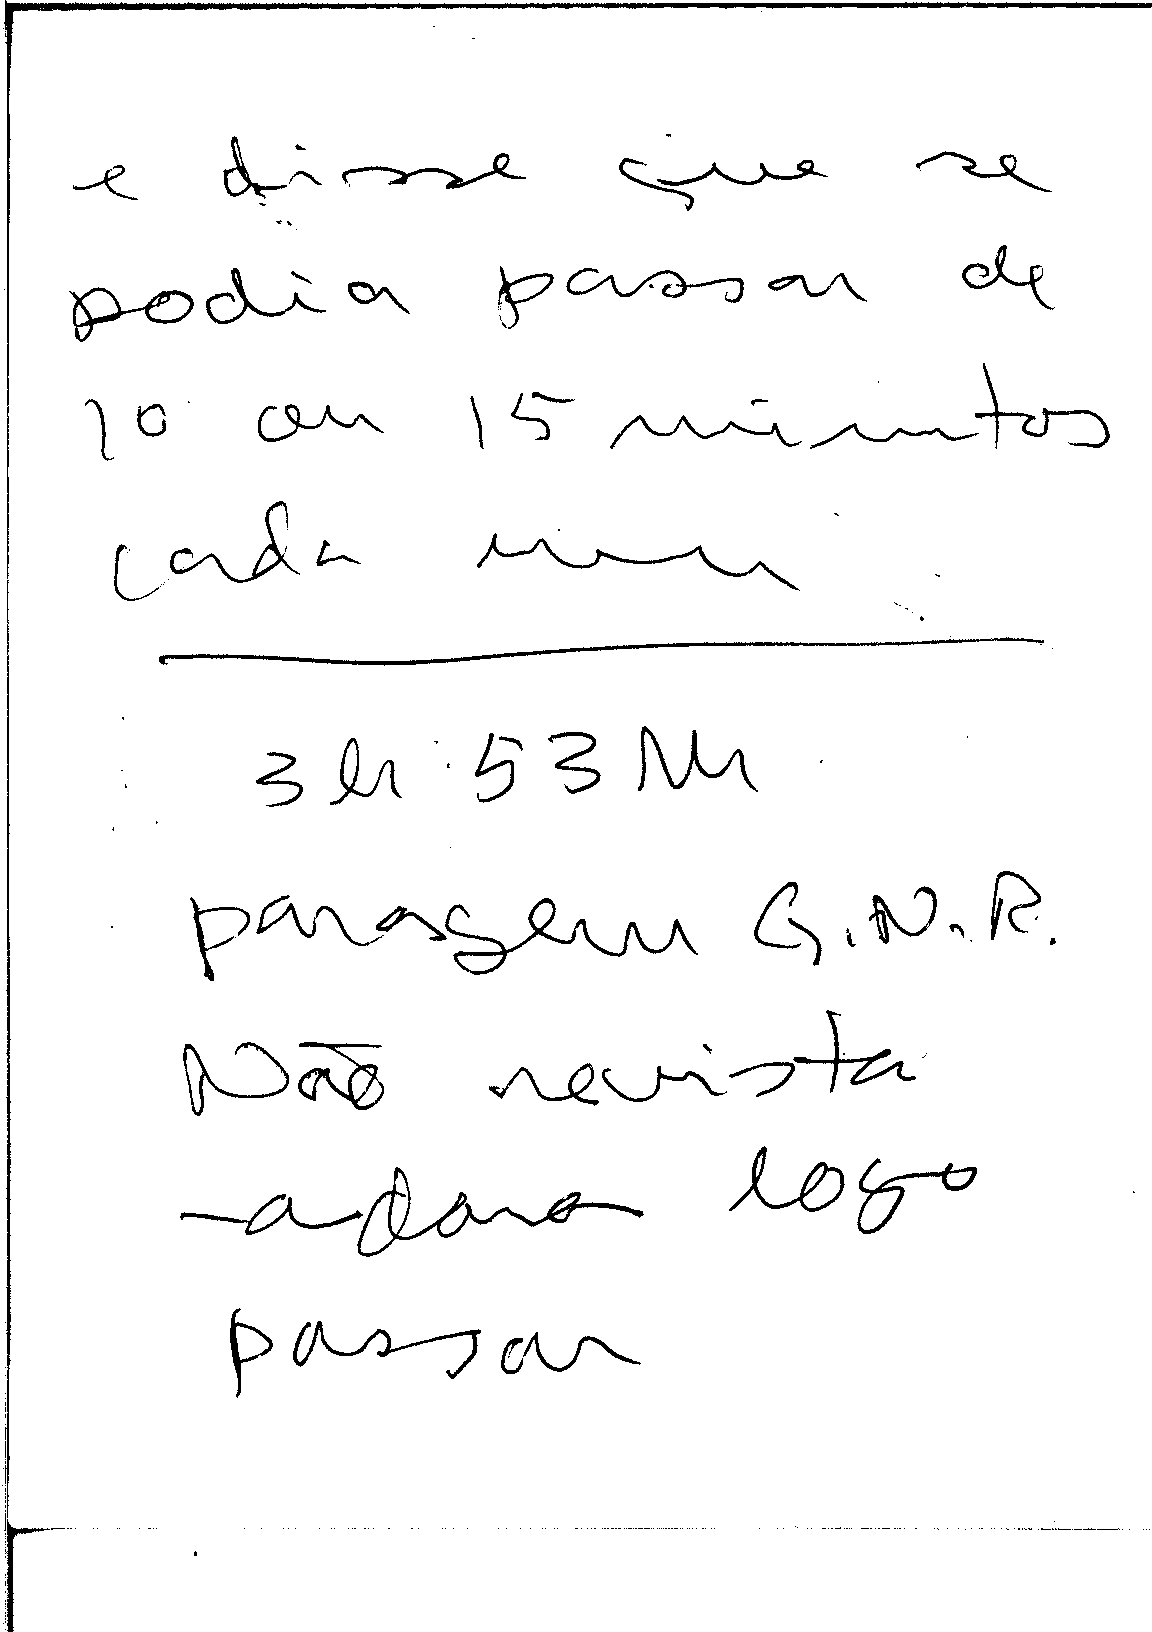 e disse que se
podia passar de
10 ou 15 minutos
cada um
3h:53M
paragem G.N.R.
Não revista
logo
passar